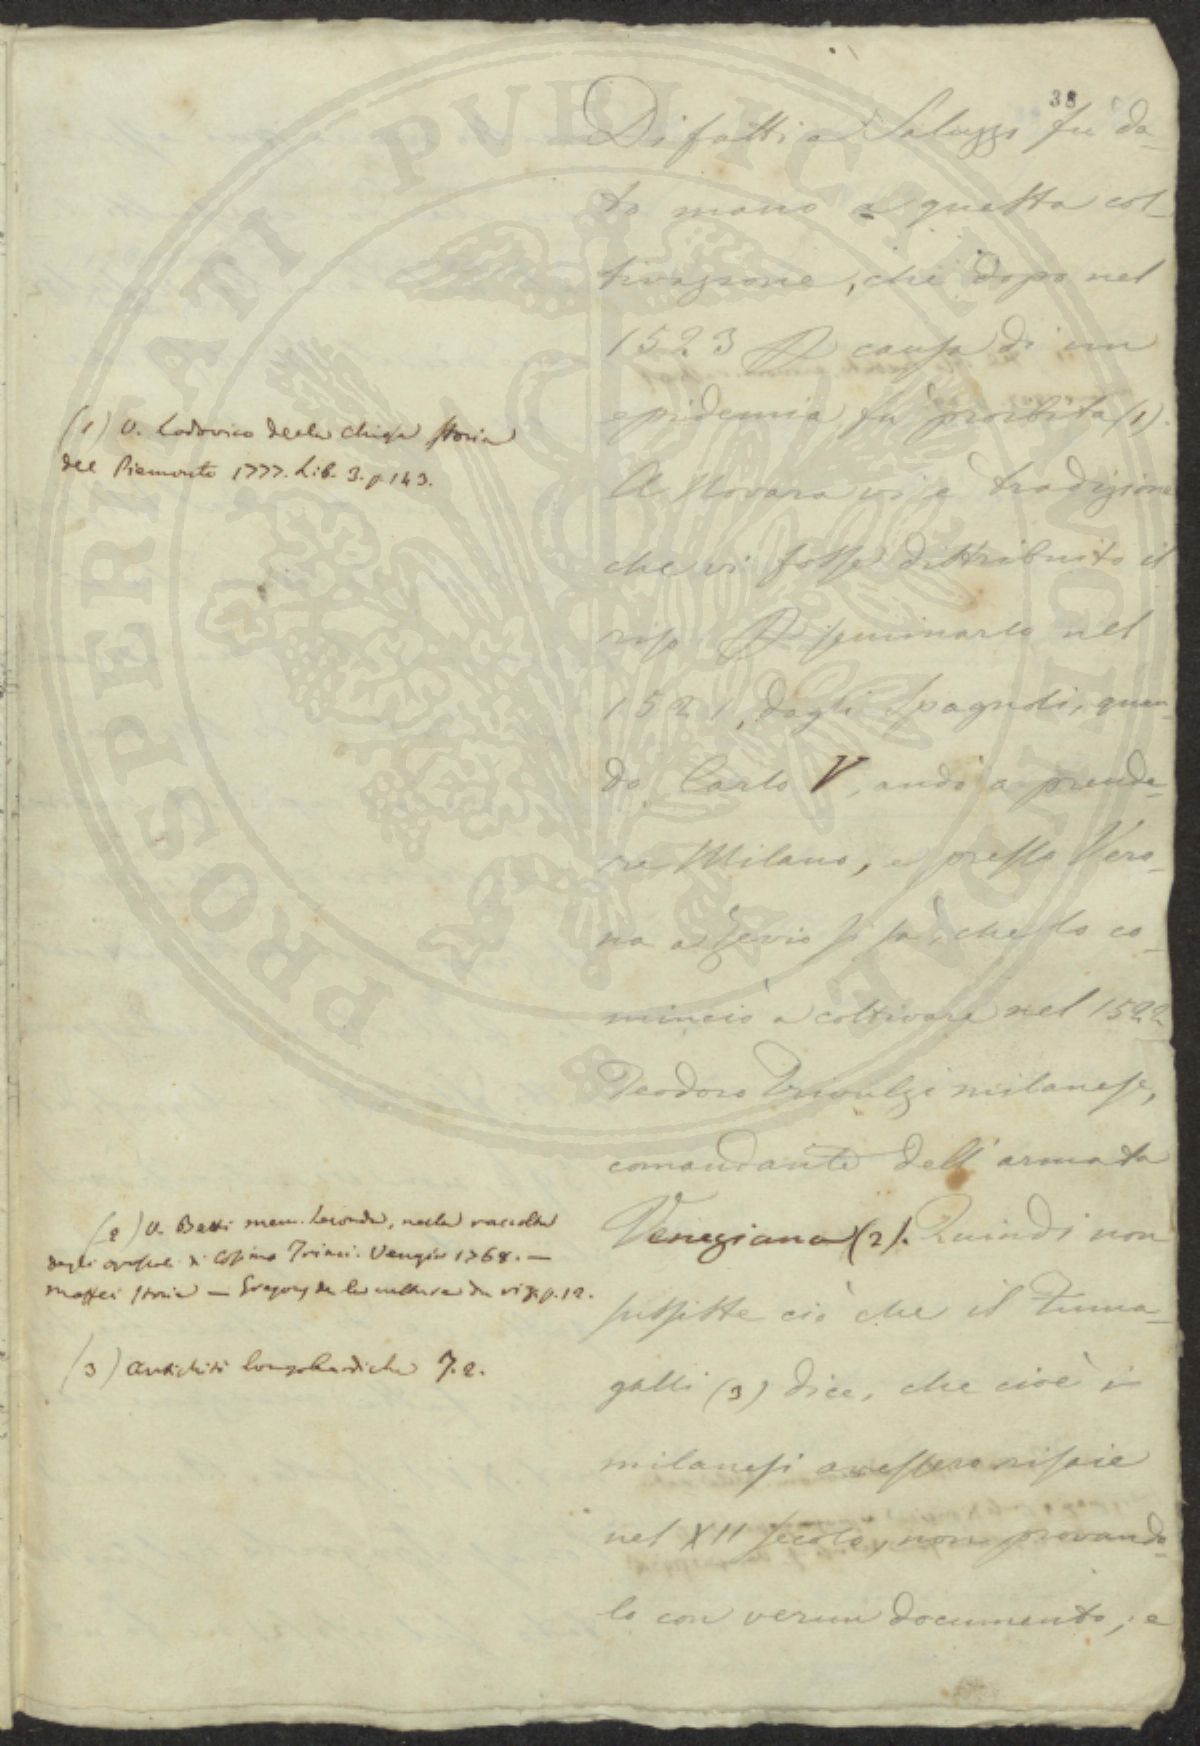 38
Di fatti a Saluzzo fù da-
to mano a questa col-
tivazione, che dopo nel
1523 P causa di un
epidemia fù proibita (1).
A Novara vi è tradizione
che vi fosse distribuito il
riso P seminarlo nel
1521, dagli Spagnoli, quan-
do Carlo V, andò a prende-
re Milano, e presso Vero-
na a Zevio si sà, che lo co-
minciò a coltivare nel 1522
Teodoro Trivulzi milanese,
comandante dell'armata
Veneziana (2). Quindi non
sussiste ciò che il Fuma-
galli (3) dice, che cioè i
milanesi avessero risaie
nel XII secolo, non provando-
lo con verun documento, e
(1) V. Lodovico della Chiesa Storia
del Piemonte 1777. Lib. 3. p 143.
(2) V. Betti mem. seconda, nella raccolta
degli opuscoli di Cosimo Trinci. Venezia 1768. —
Maffei storia — Gregory de la culture du riz. p. 12.
(3) Antichità longobardiche T. 2.
PROSPERITATI PVBLICAE AVGENDAE